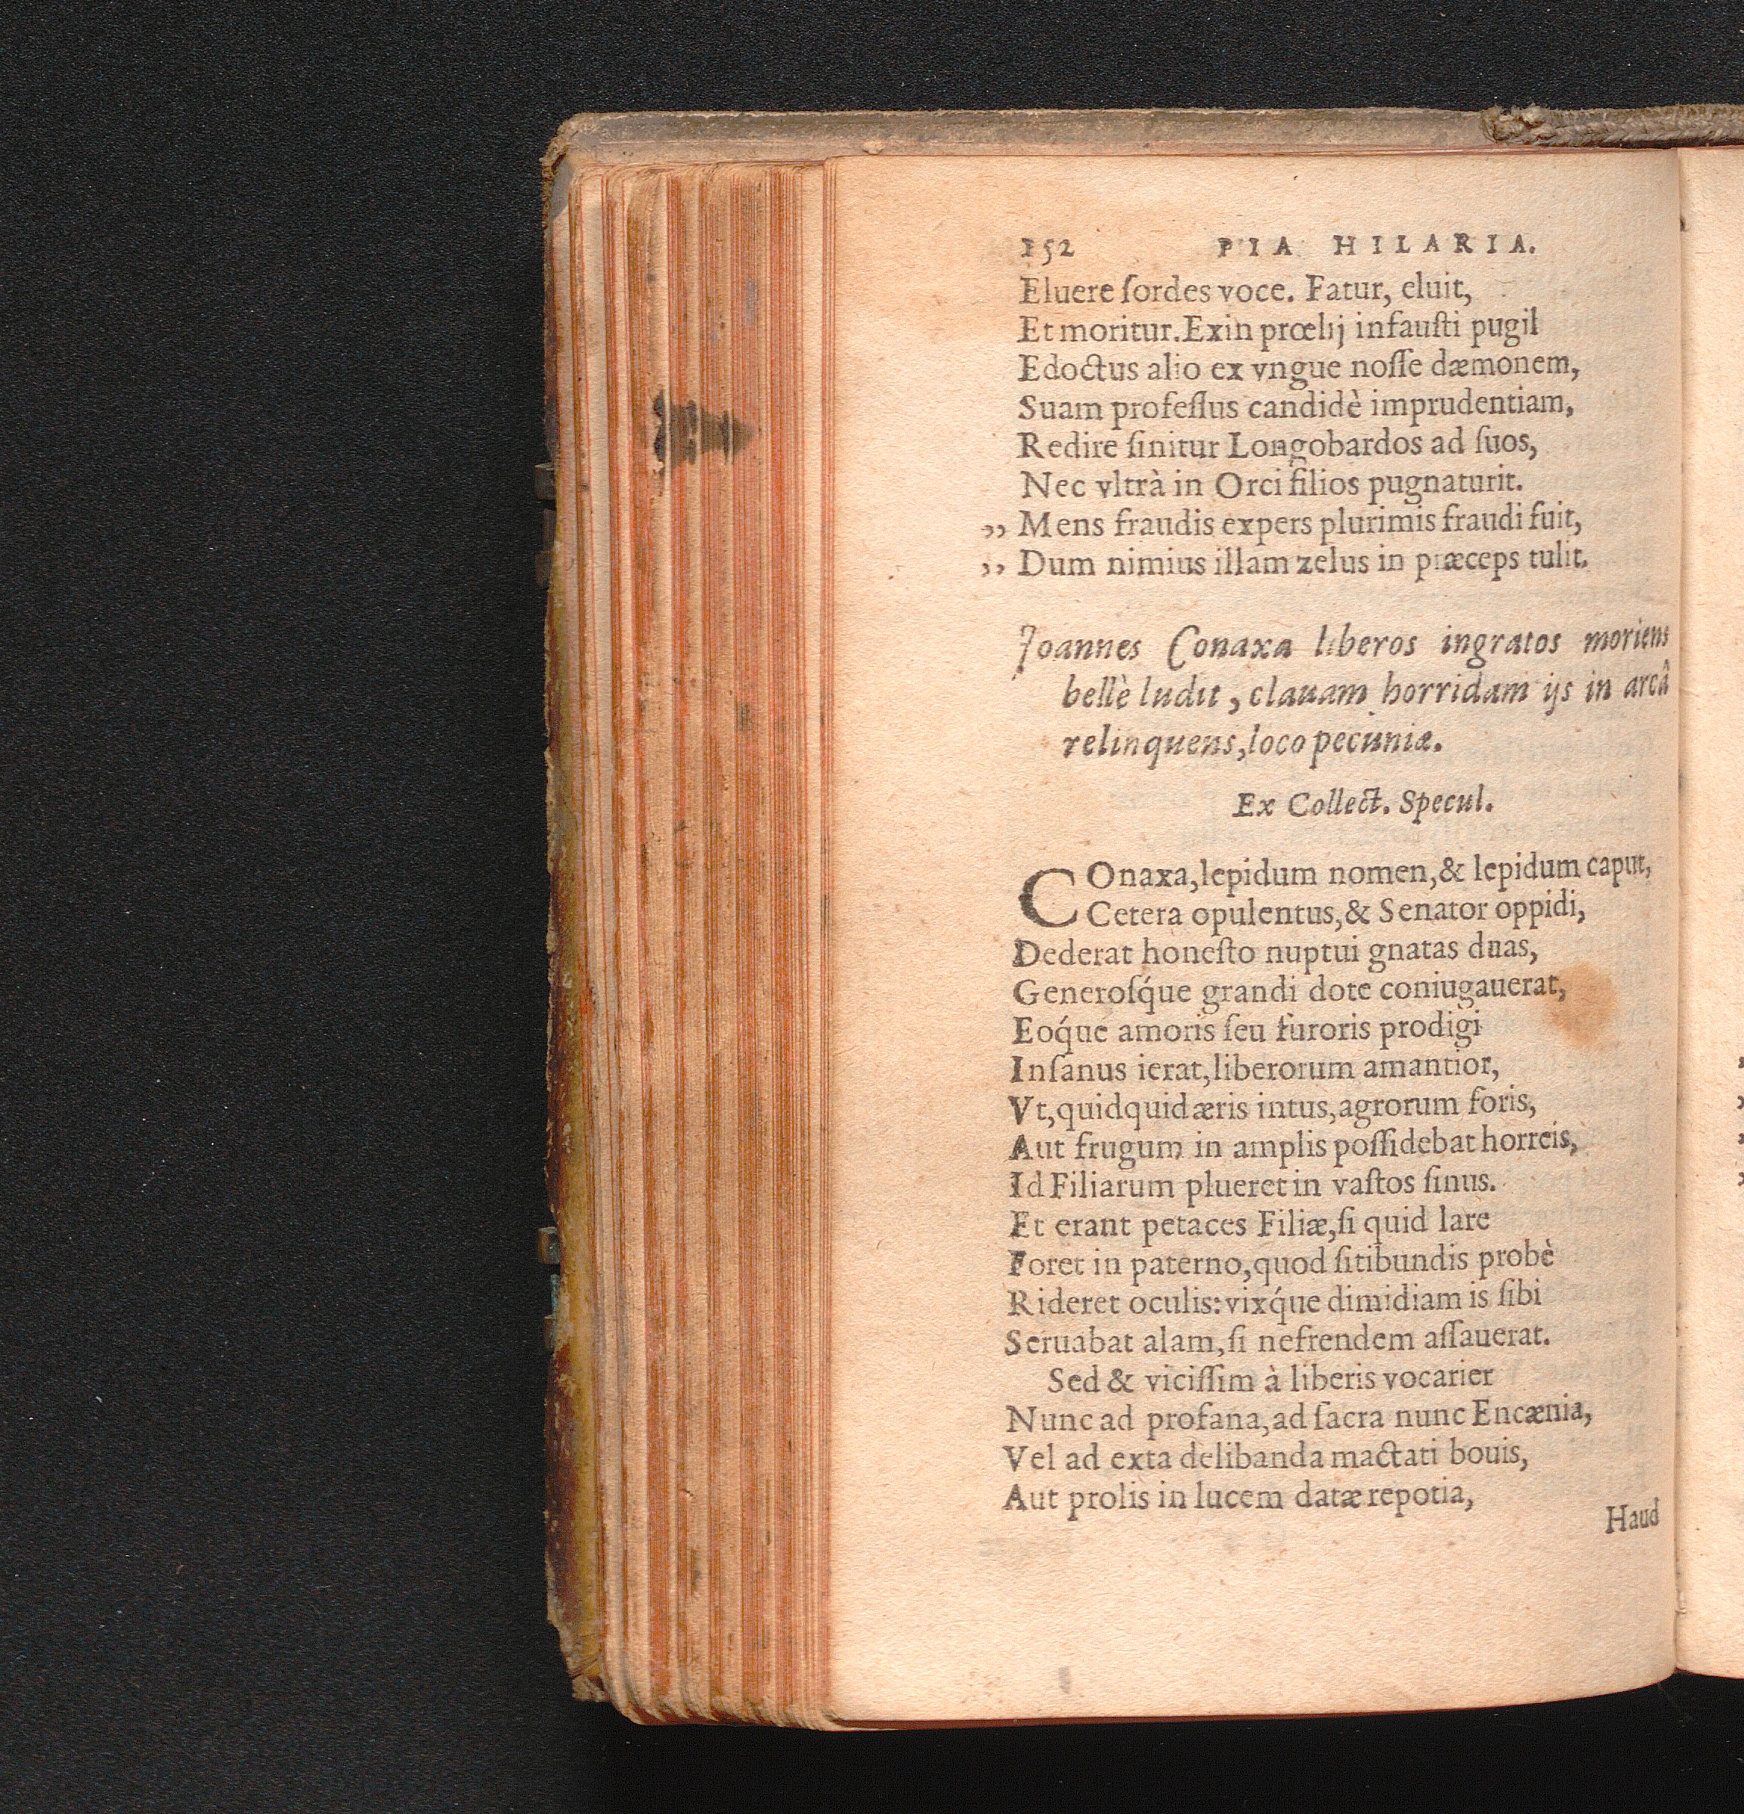 152 PIA HILARIA.
Eluere ſordes voce. Fatur, eluit,
Et moritur. Exin prœlij infauſti pugil
Edoctus alio ex vngue noſſe dæmonem,
Suam profeſſus candidè imprudentiam,
Redire ſinitur Longobardos ad ſuos,
Nec vltrà in Orci filios pugnaturit.
„ Mens fraudis expers plurimis fraudi fuit,
„ Dum nimius illam zelus in præceps tulit.
Joannes Conaxa liberos ingratos moriens
bellè ludit, clauam horridam ijs in arcâ
relinquens, loco pecuniæ.
Ex Collect. Specul.
COnaxa, lepidum nomen, & lepidum caput,
Cetera opulentus, & Senator oppidi,
Dederat honeſto nuptui gnatas duas,
Generoſq́ue grandi dote coniugauerat,
Eoq́ue amoris ſeu furoris prodigi
Inſanus ierat, liberorum amantior,
Vt, quidquid æris intus, agrorum foris,
Aut frugum in amplis poſſidebat horreis,
Id Filiarum plueret in vaſtos ſinus.
Et erant petaces Filiæ, ſi quid lare
Foret in paterno, quod ſitibundis probè
Rideret oculis: vixq́ue dimidiam is ſibi
Seruabat alam, ſi nefrendem aſſauerat.
Sed & viciſſim à liberis vocarier
Nunc ad profana, ad ſacra nunc Encænia,
Vel ad exta delibanda mactati bouis,
Aut prolis in lucem datæ repotia,
Haud